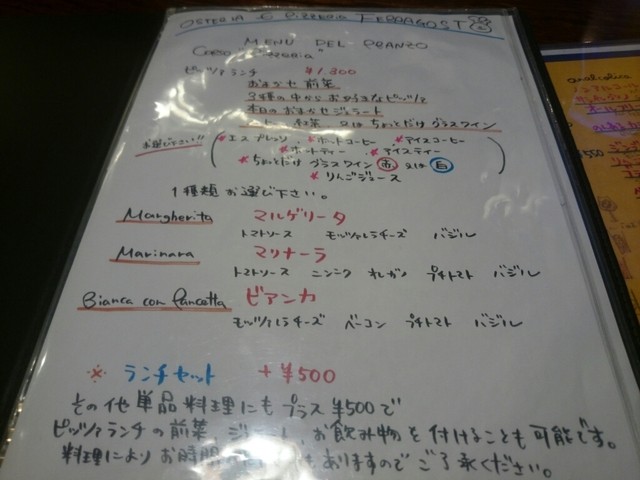 OSTERIA E PIZZERIA FERRAGOSTO
MENU DEL PRANZO
Corso "Pizzeria"
ピッツァランチ ¥1,300
おまかせ前菜
3種の中からお好きなピッツァ
本日のおまかせジェラート
紅茶 又は ちょとだけグラスワイン
お選び下さい!!
*エスプレッソ *ホットコーヒー *アイスコーヒー
*ホットティー *アイスティー
*ちょとだけグラスワイン 赤 又は 白
*りんごジュース
1種類お選び下さい。
Margherita マルゲリータ
トマトソース モッツァレラチーズ バジル
Marinara マリナーラ
トマトソース ニンニク オレガノ プチトマト バジル
Bianca con Pancetta ビアンカ
モッツァレラチーズ ベーコン プチトマト バジル
※ ランチセット +¥500
その他単品料理にもプラス¥500で
ピッツァランチの前菜、ジェラート、お飲み物を付けることも可能です。
料理によりお時間 もありますのでご了承ください。
analcolico